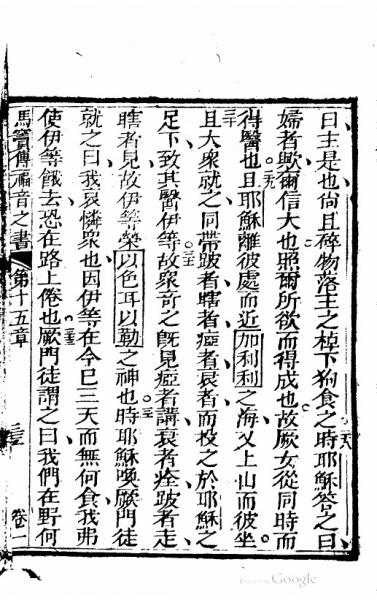 曰主是也尚且碎物落主之棹下狗食之時耶穌答之曰
婦者歟爾信大也照爾所欲而得成也故厥女從同時而
得醫也且耶穌離彼處而近加利利之海又上山而彼坐
且大衆就之同帶跛者瞎者瘂者衰者而投之於耶穌之
足下致其醫伊等故衆奇之既見瘂者講衰者痊跛者走
瞎者見故伊等榮以色耳以勒之神也時耶穌喚厥門徒
就之曰我哀憐衆也因伊等在今已三天而無何食我弗
使伊等餓去恐在路上倦也厥門徒謂之曰我們在野何
馬竇傳福音之書 第十五章 卷一
Google